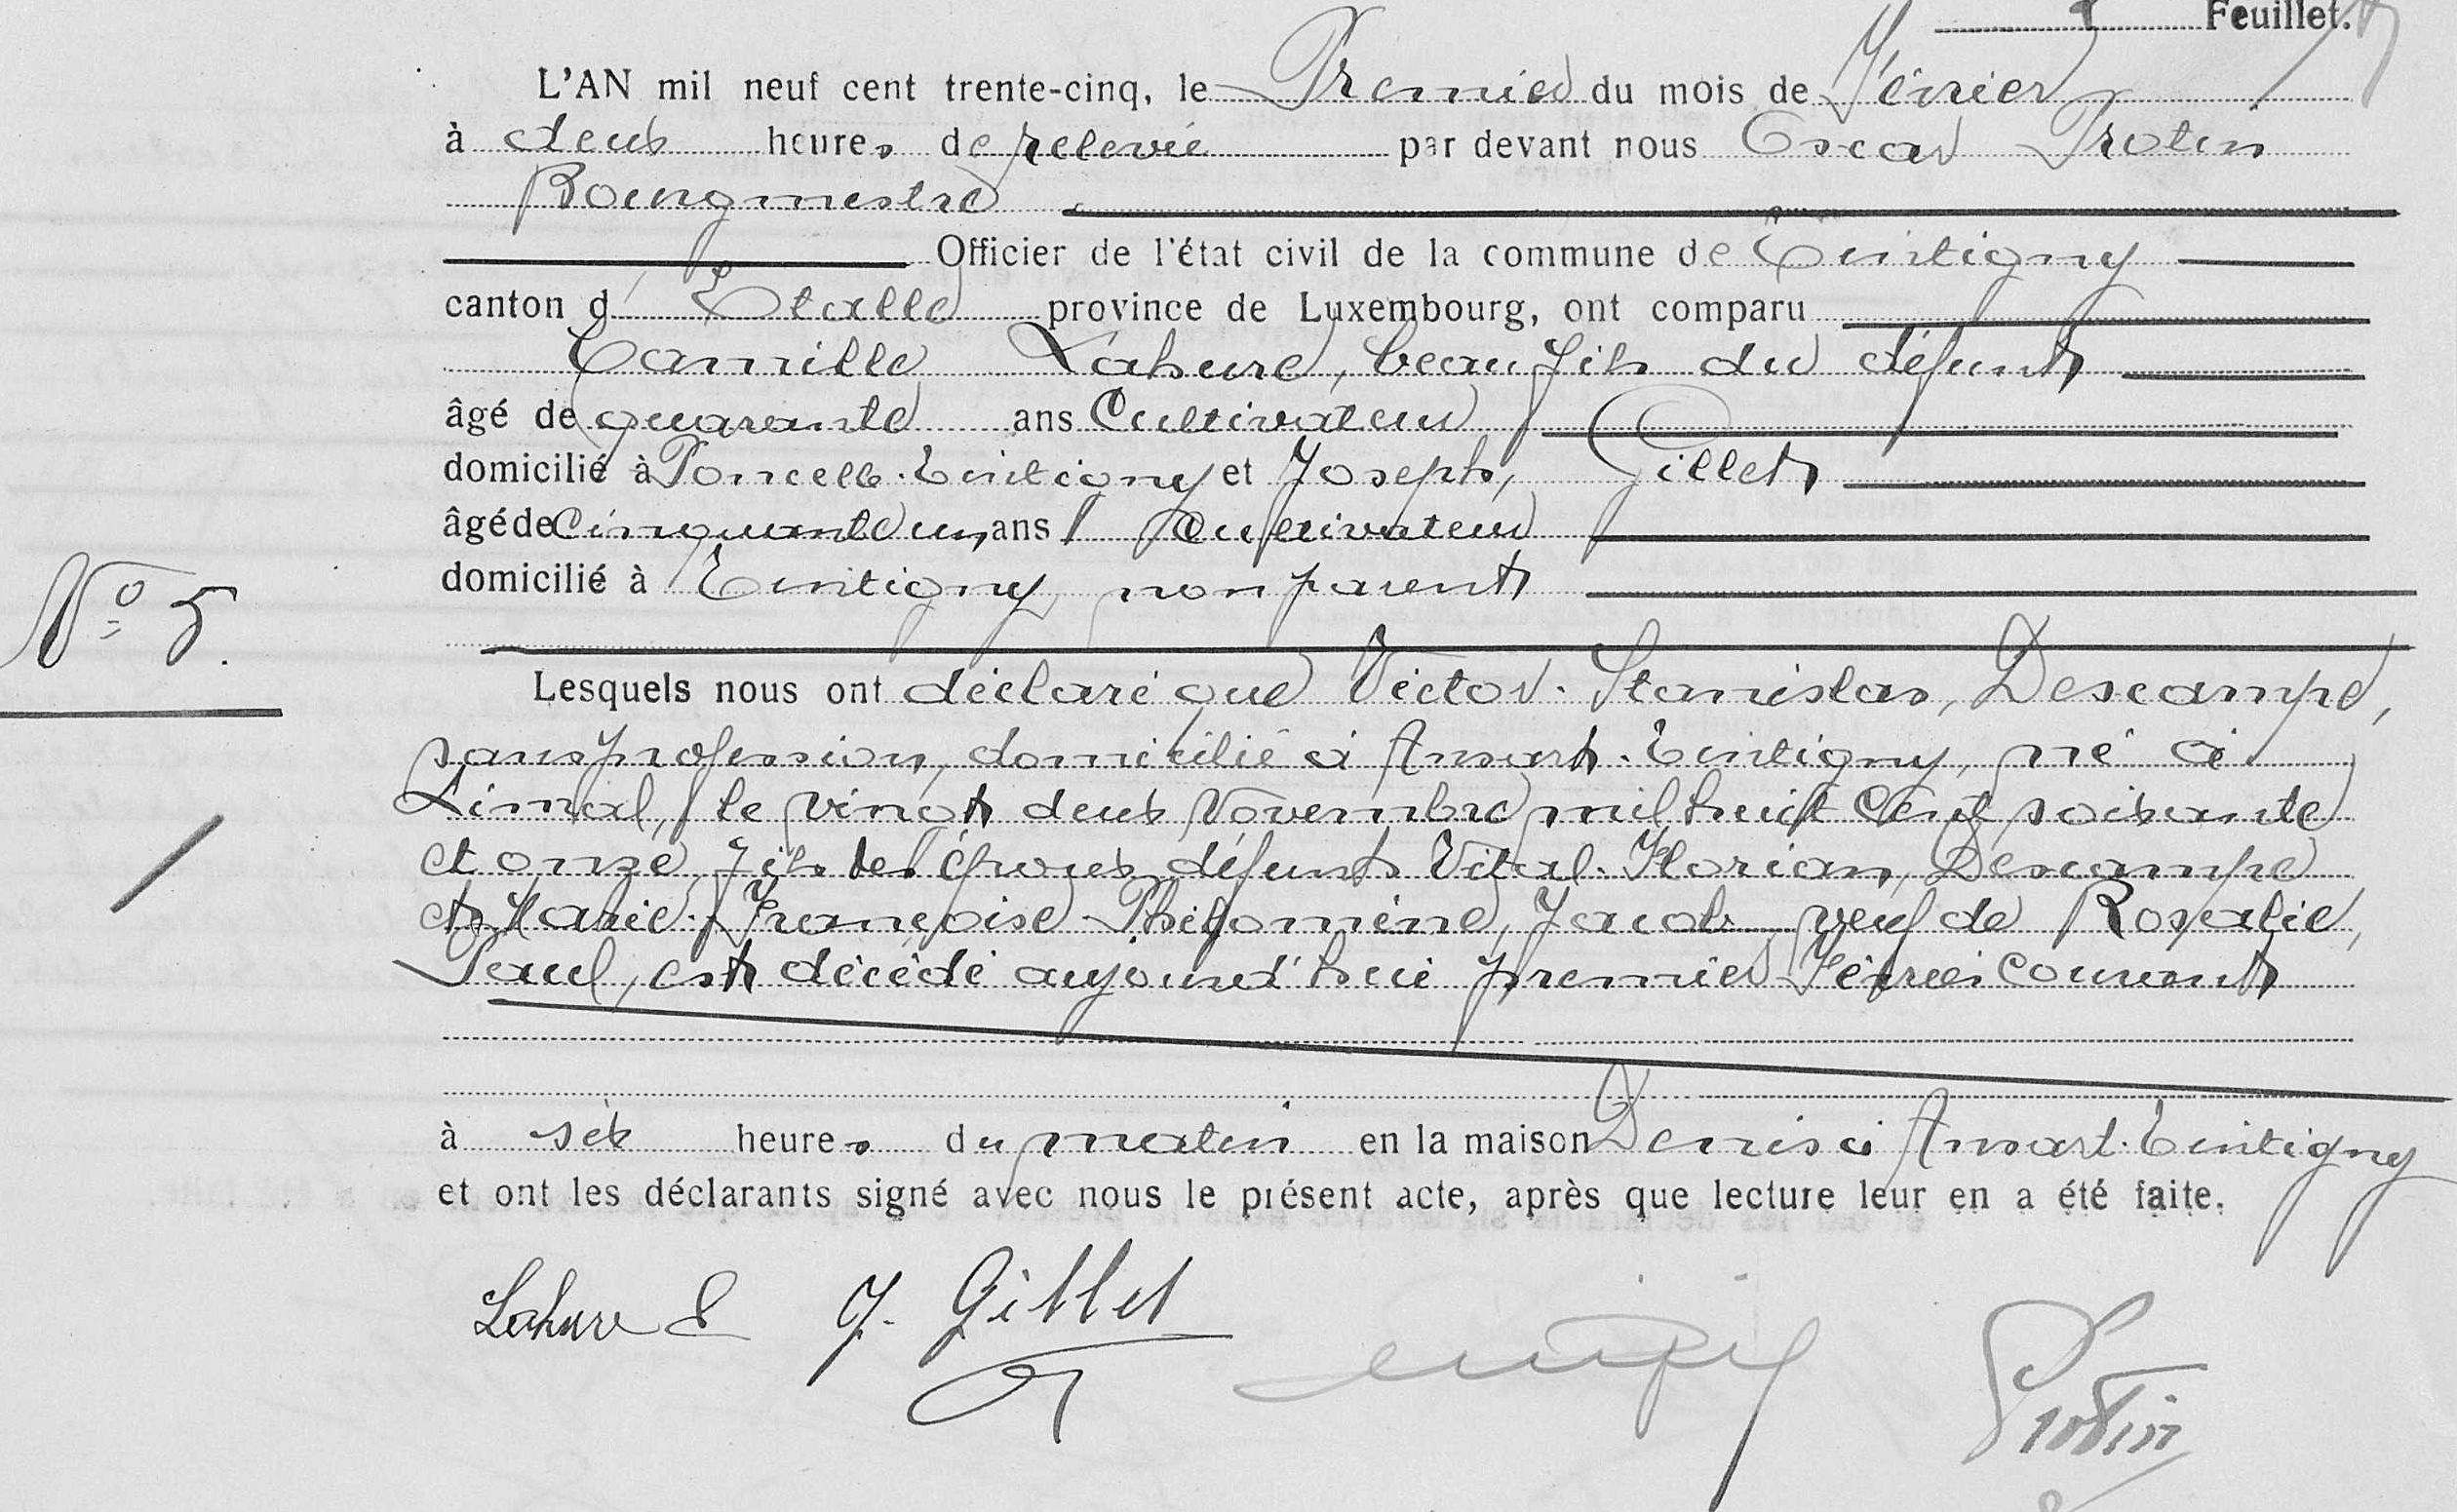 Feuillet.
L'AN mil neuf cent trente-cinq, le Premier du mois de Février
à deux heures de relevée par devant nous Oscar Protin
Bourgmestre
Officier de l'état civil de la commune de Tintigny
canton d'Etalle province de Luxembourg, ont comparu
Camille Lahure, beau fils du défunt
âgé de quarante ans Cultivateur
domicilié à Poncelle-Tintigny et Joseph, Gillet
âgé de Cinquante un ans Cultivateur
domicilié à Tintigny, non parent
N° 5.
Lesquels nous ont déclaré que Victor-Stanislas, Descampe,
sans profession, domicilié à Ansart-Tintigny, né à
Limal, le vingt deux Novembre mil huit cent soixante
et onze, fils des époux défunts Vital-Florian, Descampe
et Marie-Françoise-Philomène, Jacob, veuf de Rosalie,
Paul, est décédé aujourd'hui premier Février courant
à six heures du matin en la maison Denis à Ansart-Tintigny
et ont les déclarants signé avec nous le présent acte, après que lecture leur en a été faite.
Lahure C J. Gillet Protin